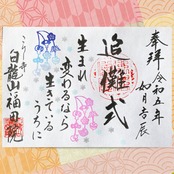 奉拝 令和五年
如月吉辰
追儺式
生まれ
変わるなら
生きている
うちに
白龍山福田院